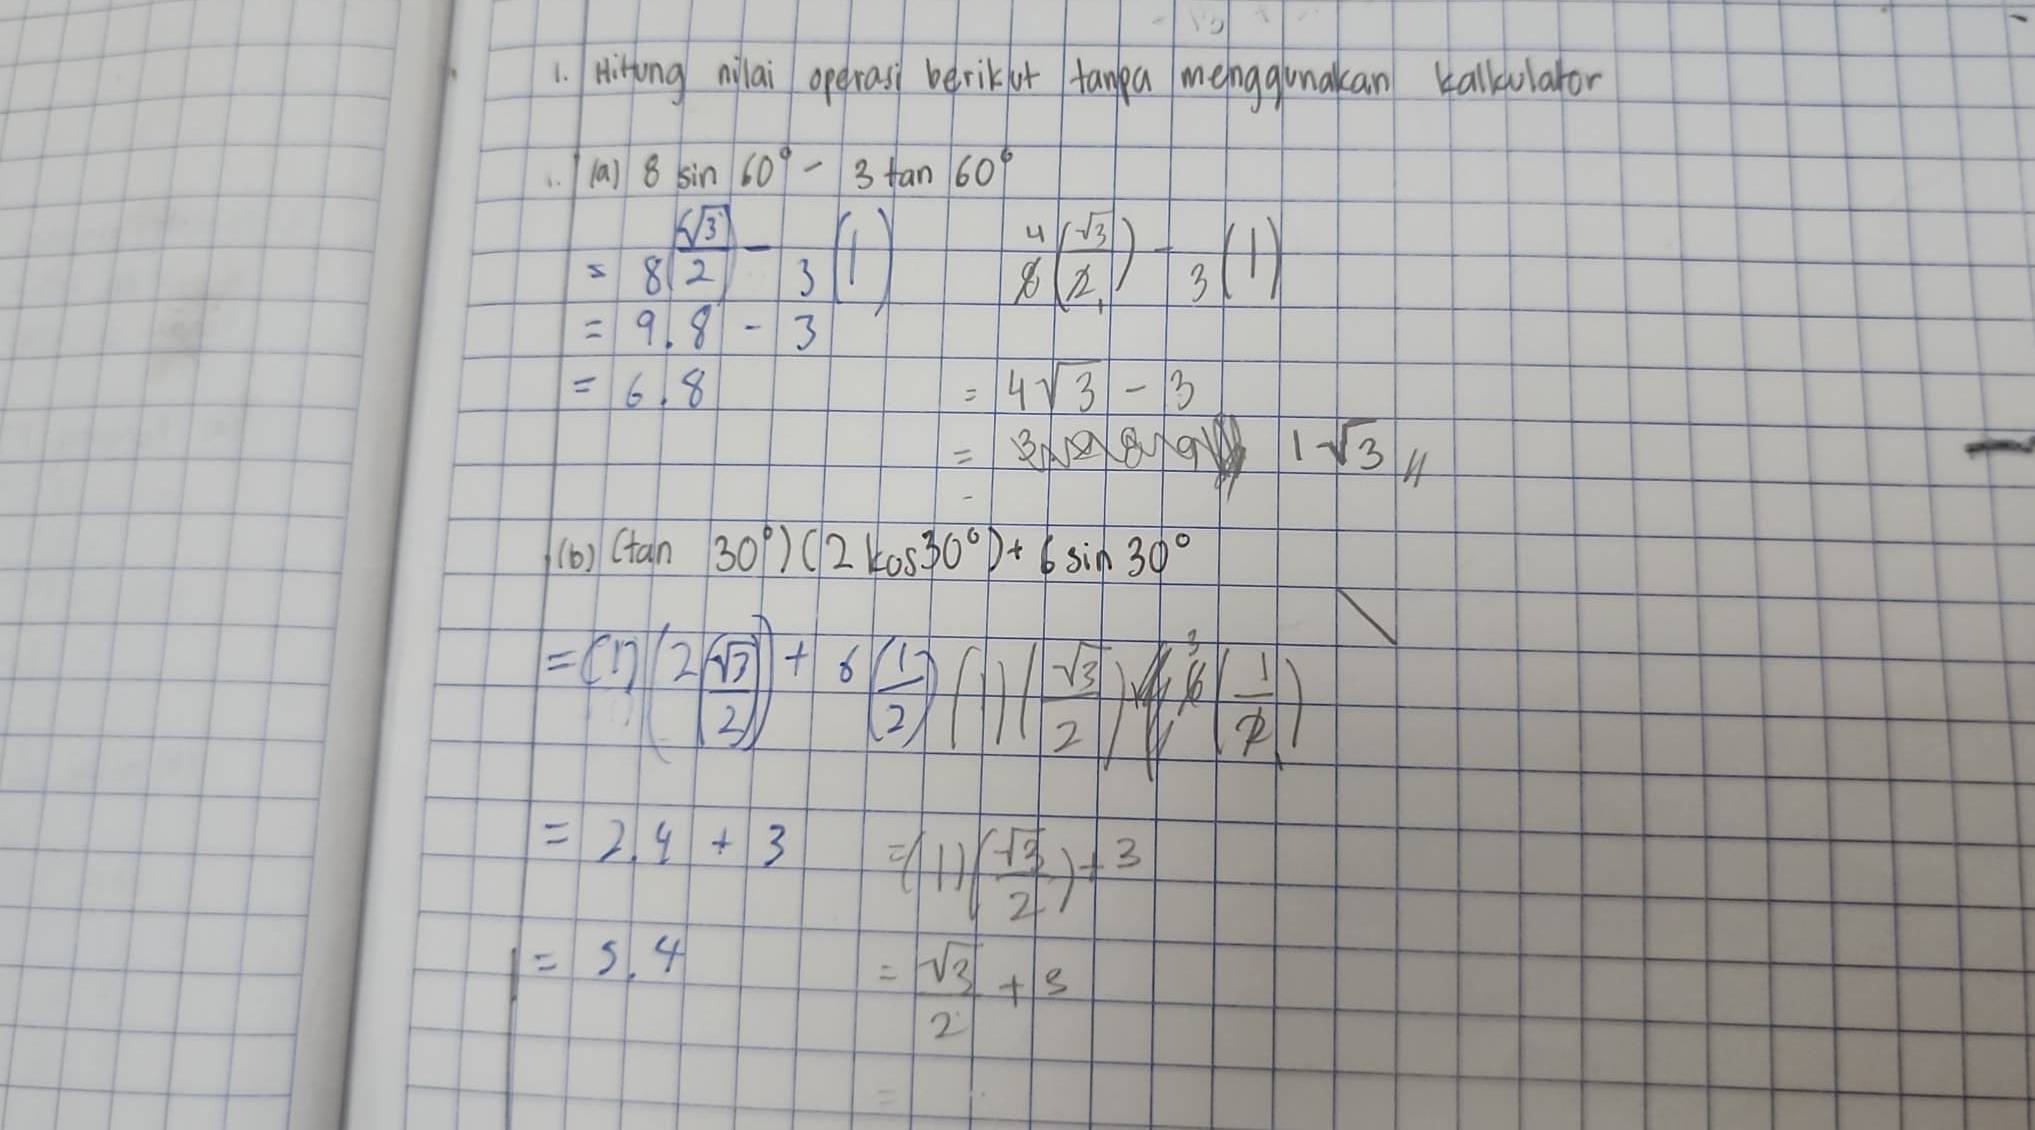 1. Hitung nilai operasi berikut tanpa menggunakan kalkulator
(a) 8 sin 60° - 3 tan 60°
= 8(√3/2) - 3(1)
= 9.8 - 3
= 6.8
8(√3/2) - 3(1)
4 1
= 4√3 - 3
= 1√3 //
(b) (tan 30°)(2 kos 30°) + 6 sin 30°
= (1)(2(√3/2)) + 6(1/2)
= 2.4 + 3
= 5.4
(1)(√3/2) 6(1/2)
3
= (1)(√3/2) + 3
= √3/2 + 3
=